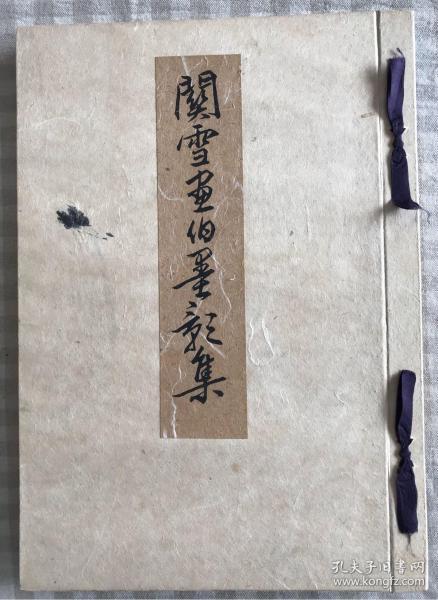 關雪画伯墨彩集
孔夫子旧书网
www.kongfz.com